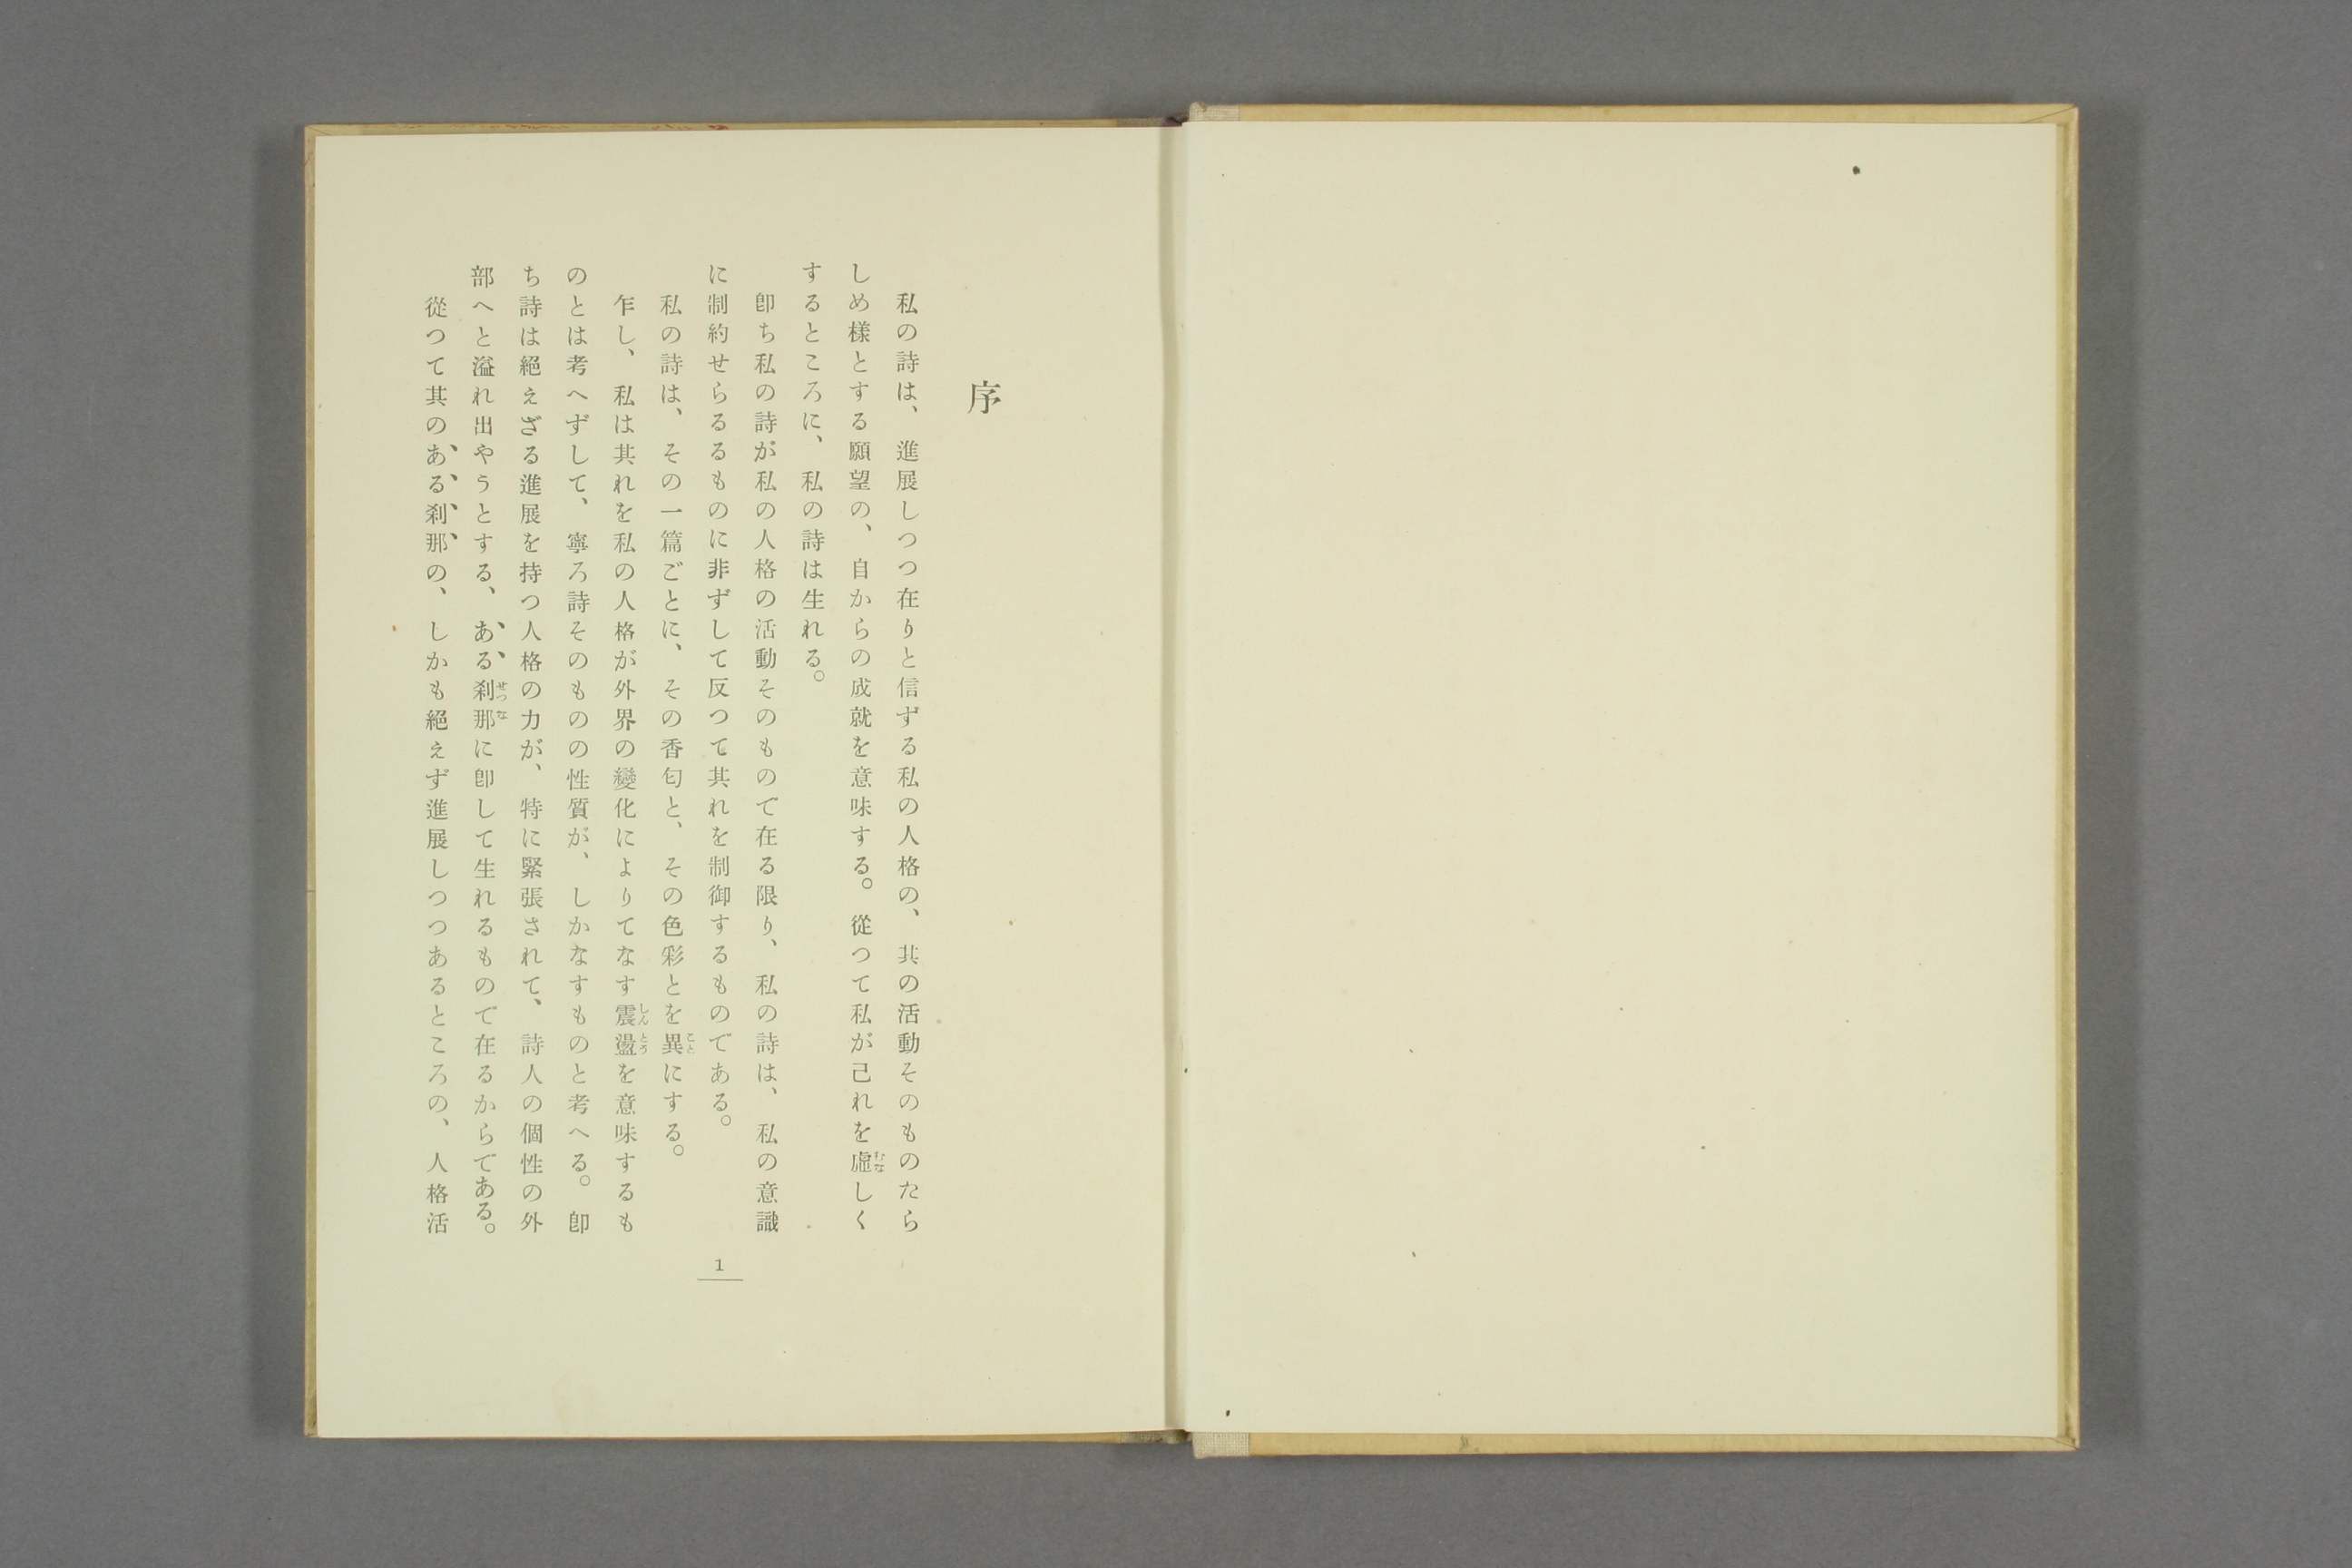 序
私の詩は、進展しつつ在りと信ずる私の人格の、其の活動そのものたら
しめ樣とする願望の、自からの成就を意味する。從つて私が己れを虛しく
するところに、私の詩は生れる。
卽ち私の詩が私の人格の活動そのもので在る限り、私の詩は、私の意識
に制約せらるるものに非ずして反つて其れを制御するものである。
私の詩は、その一篇ごとに、その香匂と、その色彩とを異にする。
乍し、私は其れを私の人格が外界の變化によりてなす震盪を意味するも
のとは考へずして、寧ろ詩そのものの性質が、しかなすものと考へる。卽
ち詩は絕えざる進展を持つ人格の力が、特に緊張されて、詩人の個性の外
部へと溢れ出やうとする、ある刹那に卽して生れるもので在るからである。
從つて其のある刹那の、しかも絕えず進展しつつあるところの、人格活
1